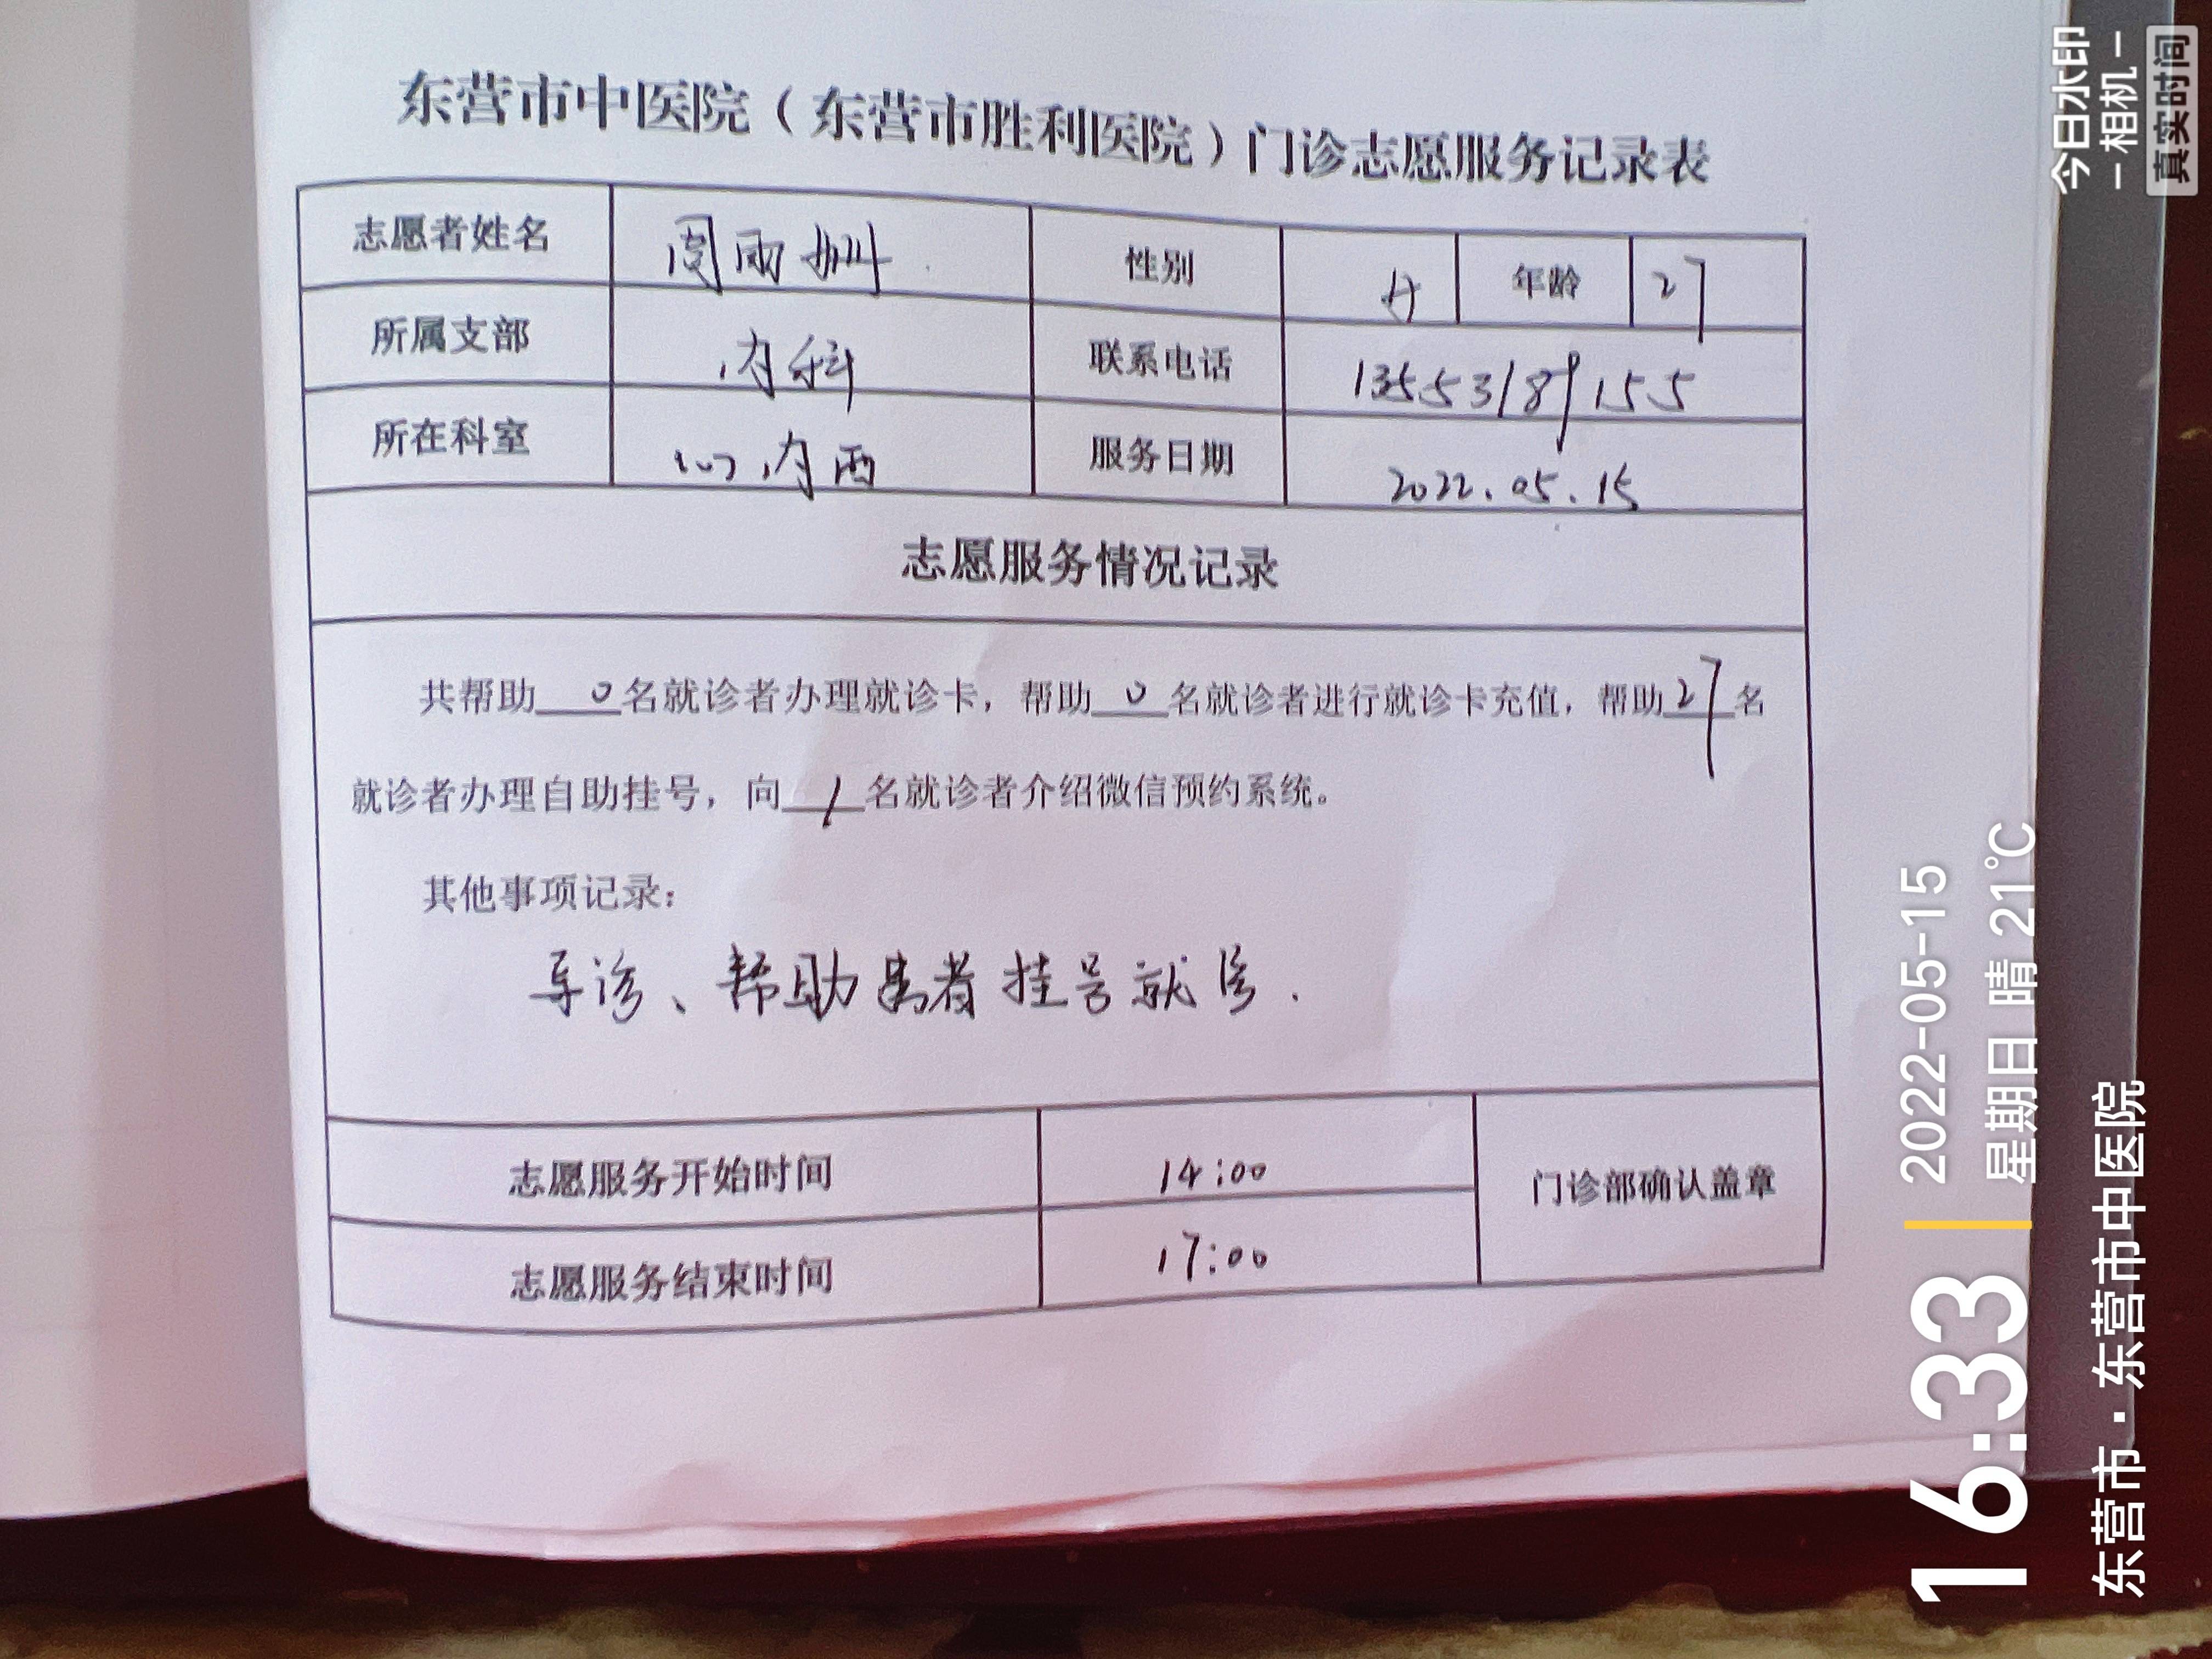 东营市中医院（东营市胜利医院）门诊志愿服务记录表
志愿者姓名 周雨 性别 女 年龄 27
所属支部 内科 联系电话 13553189155
所在科室 心内西 服务日期 2022.05.15
志愿服务情况记录
共帮助 0 名就诊者办理就诊卡，帮助 0 名就诊者进行就诊卡充值，帮助 27 名
就诊者办理自助挂号，向 1 名就诊者介绍微信预约系统。
其他事项记录：
导诊、帮助患者挂号就诊.
志愿服务开始时间 14:00 门诊部确认盖章
志愿服务结束时间 17:00
今日水印
-相机-
真实时间
16:33
2022-05-15
星期日 晴 21℃
东营市·东营市中医院